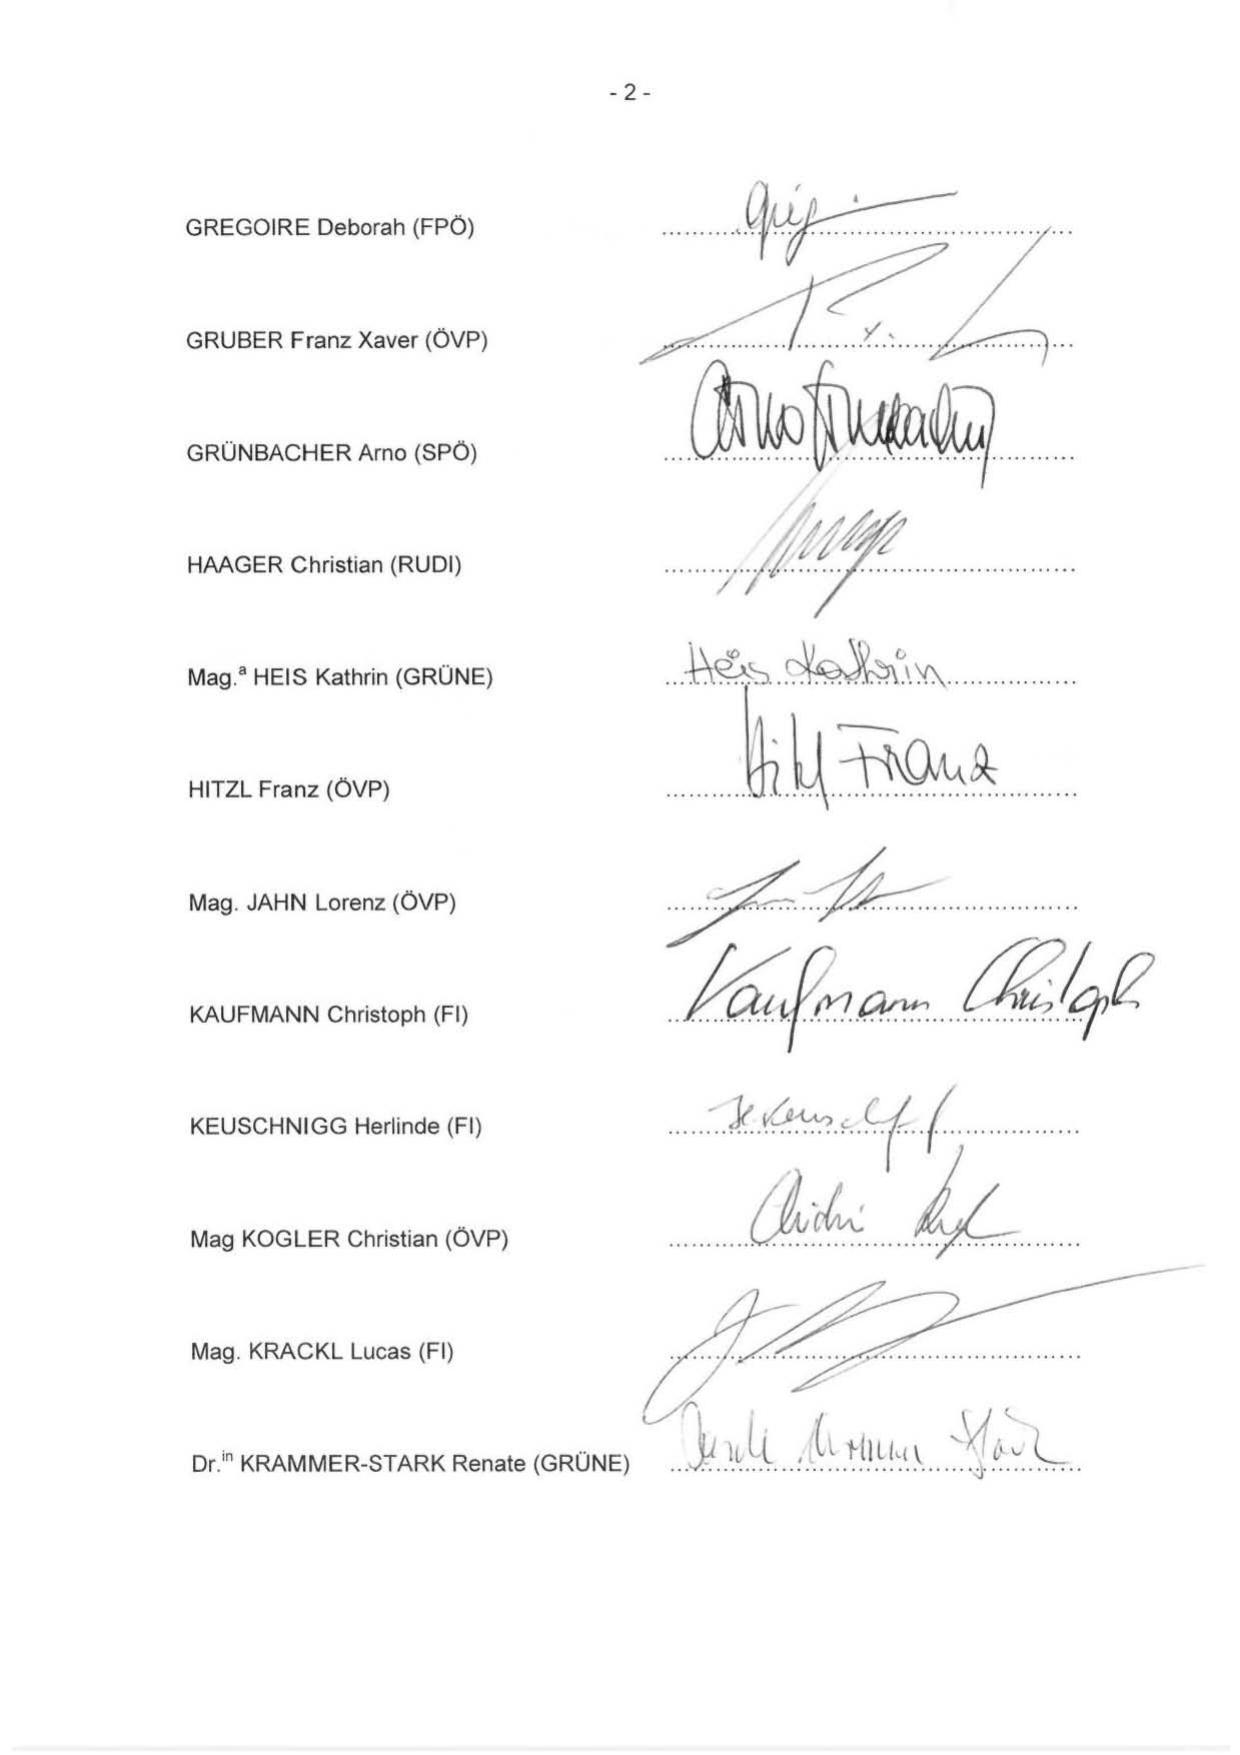 - 2 -
GREGOIRE Deborah (FPÖ)
GRUBER Franz Xaver (ÖVP)
GRÜNBACHER Arno (SPÖ) Arno Grünbacher
HAAGER Christian (RUDI)
Mag.ª HEIS Kathrin (GRÜNE) Heis Kathrin
HITZL Franz (ÖVP) Hitzl Franz
Mag. JAHN Lorenz (ÖVP)
KAUFMANN Christoph (FI) Kaufmann Christoph
KEUSCHNIGG Herlinde (FI)
Mag KOGLER Christian (ÖVP)
Mag. KRACKL Lucas (FI)
Dr.ⁱⁿ KRAMMER-STARK Renate (GRÜNE)